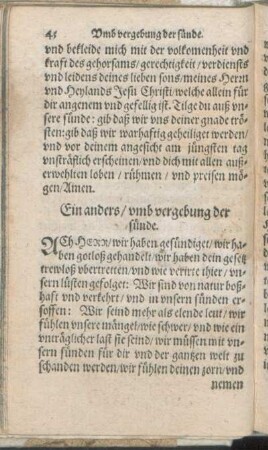 43 Vmb vergebung der sünde.
vnd bekleide mich mit der volkomenheit vnd
kraft des gehorsams/ gerechtigkeit / verdiensts
vnd leidens deines lieben sons/ meines Herrn
vnd Heylands Jesu Christi/ welche allein für
dir angenem vnd gefellig ist. Tilge du auß vn-
sere sünde: gib daß wir vns deiner gnade trö-
sten: gib daß wir warhaftig geheiliget werden/
vnd vor deinem angesicht am jüngsten tag
vnsträflich erscheinen/ vnd dich mit allen auß-
erwehlten loben/ rühmen / vnd preisen mö-
gen/ Amen.
Ein anders/ vmb vergebung der
sünde.
ACh HERR/ wir haben gesündiget/ wir ha-
ben gotloß gehandelt/ wir haben dein gesetz
trewloß vbertretten/ vnd wie verirte thier/ vn-
sern lüsten gefolget: Wir sind von natur boß-
haft vnd verkehrt/ vnd in vnsern sünden er-
soffen: Wir seind mehr als elende leut/ wir
fühlen vnsere mängel/ wie schwer/ vnd wie ein
vnträglicher last sie seind/ wir müssen mit vn-
sern sünden für dir vnd der gantzen welt zu
schanden werden/ wir fühlen deinen zorn/ vnd
nemen